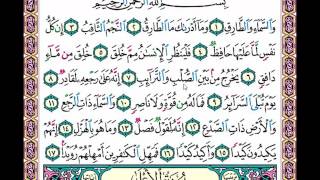 بِسْمِ اللَّهِ الرَّحْمَٰنِ الرَّحِيمِ
وَالسَّمَاءِ وَالطَّارِقِ ١ وَمَا أَدْرَاكَ مَا الطَّارِقُ ٢ النَّجْمُ الثَّاقِبُ ٣ إِن كُلُّ
نَفْسٍ لَّمَّا عَلَيْهَا حَافِظٌ ٤ فَلْيَنظُرِ الْإِنسَانُ مِمَّ خُلِقَ ٥ خُلِقَ مِن مَّاءٍ
دَافِقٍ ٦ يَخْرُجُ مِن بَيْنِ الصُّلْبِ وَالتَّرَائِبِ ٧ إِنَّهُ عَلَىٰ رَجْعِهِ لَقَادِرٌ ٨
يَوْمَ تُبْلَى السَّرَائِرُ ٩ فَمَا لَهُ مِن قُوَّةٍ وَلَا نَاصِرٍ ١٠ وَالسَّمَاءِ ذَاتِ الرَّجْعِ ١١
وَالْأَرْضِ ذَاتِ الصَّدْعِ ١٢ إِنَّهُ لَقَوْلٌ فَصْلٌ ١٣ وَمَا هُوَ بِالْهَزْلِ ١٤ إِنَّهُمْ
يَكِيدُونَ كَيْدًا ١٥ وَأَكِيدُ كَيْدًا ١٦ فَمَهِّلِ الْكَافِرِينَ أَمْهِلْهُمْ رُوَيْدًا ١٧